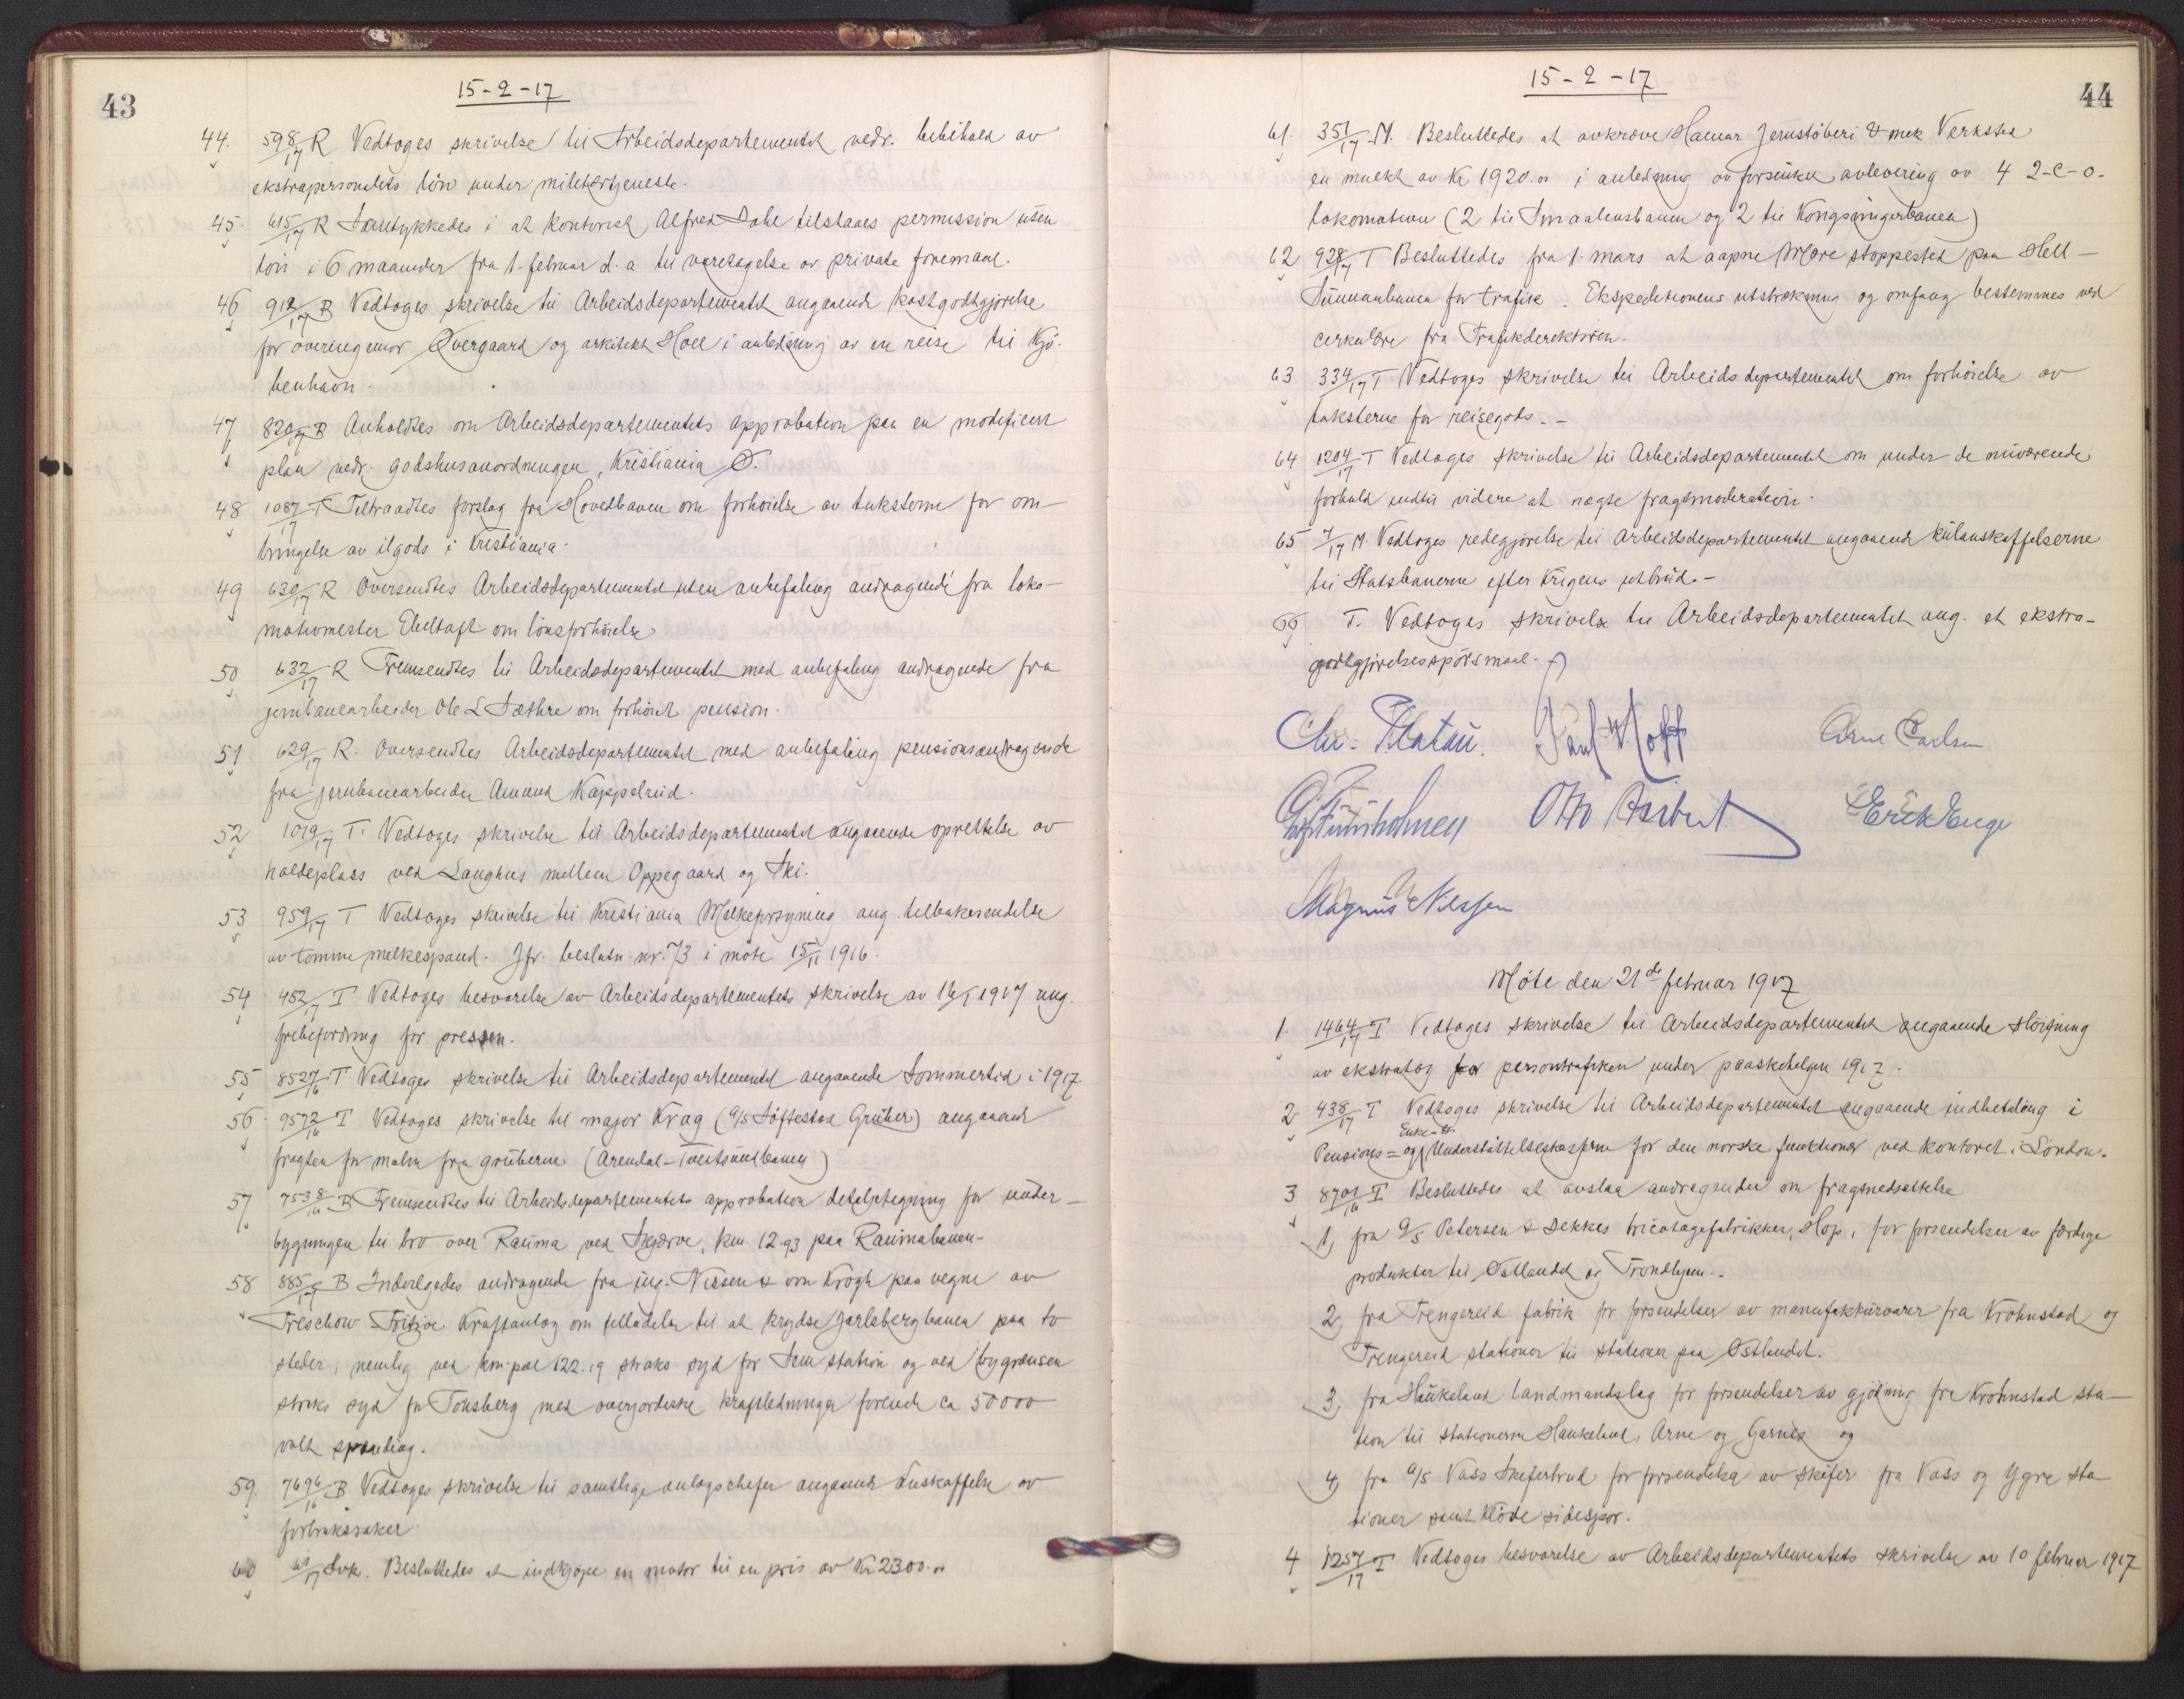 43
15-2-17
44. 598/17 R Vedtoges skrivelse til Arbeidsdepartementet vedr. bibehold av
ekstrapersonalets lön under militærtjeneste.
45. 615/17 R Samtykkedes i at kontorist Alfred Dahl tilstaaes permission uten
lön i 6 maaneder fra 1. februar d. a til varetagelse av private foremaal.
46 912/17 B Vedtoges skrivelse til Arbeidsdepartementet angaaende kostgodtgjörelse
for överingeniör Övergaard og arkitekt Hoel i anledning av en reise til Kjö-
benhavn.
47 820/17 B Anholdtes om Arbeidsdepartementets approbation paa en modificert
plan vedr. godshusanordningen, Kristiania Ø.
48 1087/17 T Tiltraadtes forslag fra Hovedbanen om forhöielse av taksterne for om-
bringelse av ilgods i Kristiania.
49 630/17 R Oversendtes Arbeidsdepartementet uten anbefaling andragende fra loko-
motivmester Ebeltoft om lönsforhöielse
50 632/17 R Fremsendtes til Arbeidsdepartementet med anbefaling andragende fra
jernbanearbeider Ole L Sæthre om forhöiet pension.
51 629/17 R. Oversendtes Arbeidsdepartementet med anbefaling pensionsandragende
fra jernbanearbeider Amund Kappelrud.
52 1019/17 T. Vedtoges skrivelse til Arbeidsdepartementet angaaende oprettelse av
holdeplass ved Langhus mellem Oppegaard og Ski.
53 959/17 T Vedtoges skrivelse til Kristiania Melkeforsyning ang. tilbakesendelse
av tomme melkespand. Jfr. beslutn. nr. 73 i möte 15/11 1916.
54 452/17 T Vedtoges besvarelse av Arbeidsdepartementets skrivelse av 16/1 1917 ang.
fribefordring for pressen.
55 8527/16 T Vedtoges skrivelse til Arbeidsdepartementet angaaende Sommertid i 1917.
56 9572/16 T Vedtoges skrivelse til major Krag (A/S Söftestad Gruber) angaaende
fragten for malm fra gruberne (Arendal-Tveitsundbanen)
57 7538/16 B Fremsendtes til Arbeidsdepartementets approbation detaljtegning for under-
bygningen til bro over Rauma ved Skjærve, km. 12.93 paa Raumabanen-
58 885/17 B Indvilgedes andragende fra ing. Nissen & von Krogh paa vegne av
Treschow Fritzöe Kraftanlæg om tilladelse til at krydse Jarlsbergbanen paa to
steder, nemlig ved km. pæl 122.19 straks syd for Sem station og ved bygrænsen
straks syd for Tönsberg med overjordiske kraftledninger förende ca 50000
volt spænding.
59. 7696/16 B Vedtoges skrivelse til samtlige anlægschefer angaaende anskaffelse av
forbrukssaker
60 /17 Svk. Besluttedes at indkjöpe en motor til en pris av Kr 2300.00
44
15-2-17
61. 351/17 M. Besluttedes at avkræve Hamar Jernstöberi & mek Verksted
en mulkt av Kr 1920.00 i anledning av forsinket avlevering av 4 2-C-0.
lokomotiver (2 til Smaalensbanen og 2 til Kongsvingerbanen)
62 928/17 T Besluttedes fra 1. mars at aapne Mære stoppested paa Hell-
Sunnanbanen for trafik. Ekspeditionens utstrækning og omfang bestemmes ved
cirkulære fra Trafikdirektören.
63 334/17 T Vedtoges skrivelse til Arbeidsdepartementet om forhöielse av
taksterne for reisegods.-
64 1204/17 T Vedtoges skrivelse til Arbeidsdepartementet om under de nuværende
forhold indtil videre at nægte fragtmoderation.
65 7/17 M Vedtoges redegjörelse til Arbeidsdepartementet angaaende kulanskaffelserne
til Statsbanerne efter krigens utbrud.-
66 T. Vedtoges skrivelse til Arbeidsdepartementet ang. et ekstra-
godtgjörelsesspörsmaal.
Chr. Platou. Paul Hoff Arne Carlsen
Furuholmen Otto Aubert Erik Enge
Magnus Nilssen
Möte den 21de februar 1917
1. 1464/17 T Vedtoges skrivelse til Arbeidsdepartementet angaaende slöifning
av ekstratog for persontrafiken under paaskehelgen 1917.
2 438/17 T Vedtoges skrivelse til Arbeidsdepartementet angaaende indbetaling i
Enke- &
Pensions= og Understöttelseskasserne for den norske funktionær ved kontoret i London.
3 8701/16 T Besluttedes at avslaa andragender om fragtnedsættelse
1, fra A/S Petersen & Dekkes tricotagefabrikker, Hop, for forsendelser av færdige
produkter til Östlandet og Trondhjem..
2, fra Trengereid fabrik for forsendelser av manufakturvarer fra Krohnstad og
Trengereid stationer til stationer paa Östlandet.
3, fra Haukeland landmandslag for forsendelser av gjödning fra Krohnstad sta-
tion til stationerne Haukeland, Arne og Garnes og
4, fra A/S Voss Skiferbrud for forsendelser av skifer fra Voss og Ygre sta
tioner samt Klöve sidespor.
4 1257/17 T Vedtoges besvarelse av Arbeidsdepartementets skrivelse av 10 februar 1917